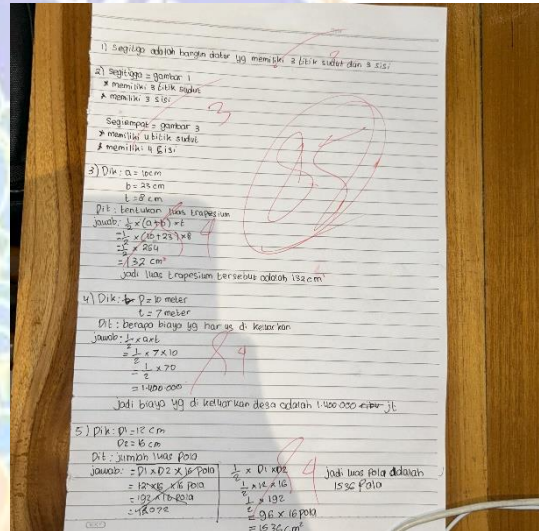 1) Segitiga adalah bangun datar yg memiliki 3 titik sudut dan 3 sisi
2) Segitiga = gambar 1
* memiliki 3 titik sudut
* memiliki 3 sisi
3
Segiempat = gambar 3
* memiliki 4 titik sudut
* memiliki 4 sisi
85
3) Dik: a = 10cm
b = 23 cm
t = 8 cm
Dit: tentukan luas trapesium
jawab: 1/2 x (a+b) x t
= 1/2 x (10+23) x 8
= 1/2 x 264
= 132 cm²
4
jadi luas trapesium tersebut adalah 132cm²
4) Dik: P = 10 meter
t = 7 meter
Dit: berapa biaya yg harus di keluarkan
jawab: 1/2 x a x t
= 1/2 x 7 x 10
= 1/2 x 70
= 1.400.000
4
jadi biaya yg di keluarkan desa adalah 1.400.000 jt
5) Dik: D1 = 12 cm
D2 = 16 cm
Dit: jumlah luas Pola
jawab: = D1 x D2 x 16 Pola
= 12 x 16 x 16 pola
= 192 x 16 pola
= 43072
1/2 x D1 x D2
1/2 x 12 x 16
1/2 x 192
= 96 x 16 pola
= 1536 cm²
4
jadi luas Pola adalah
1536 Pola